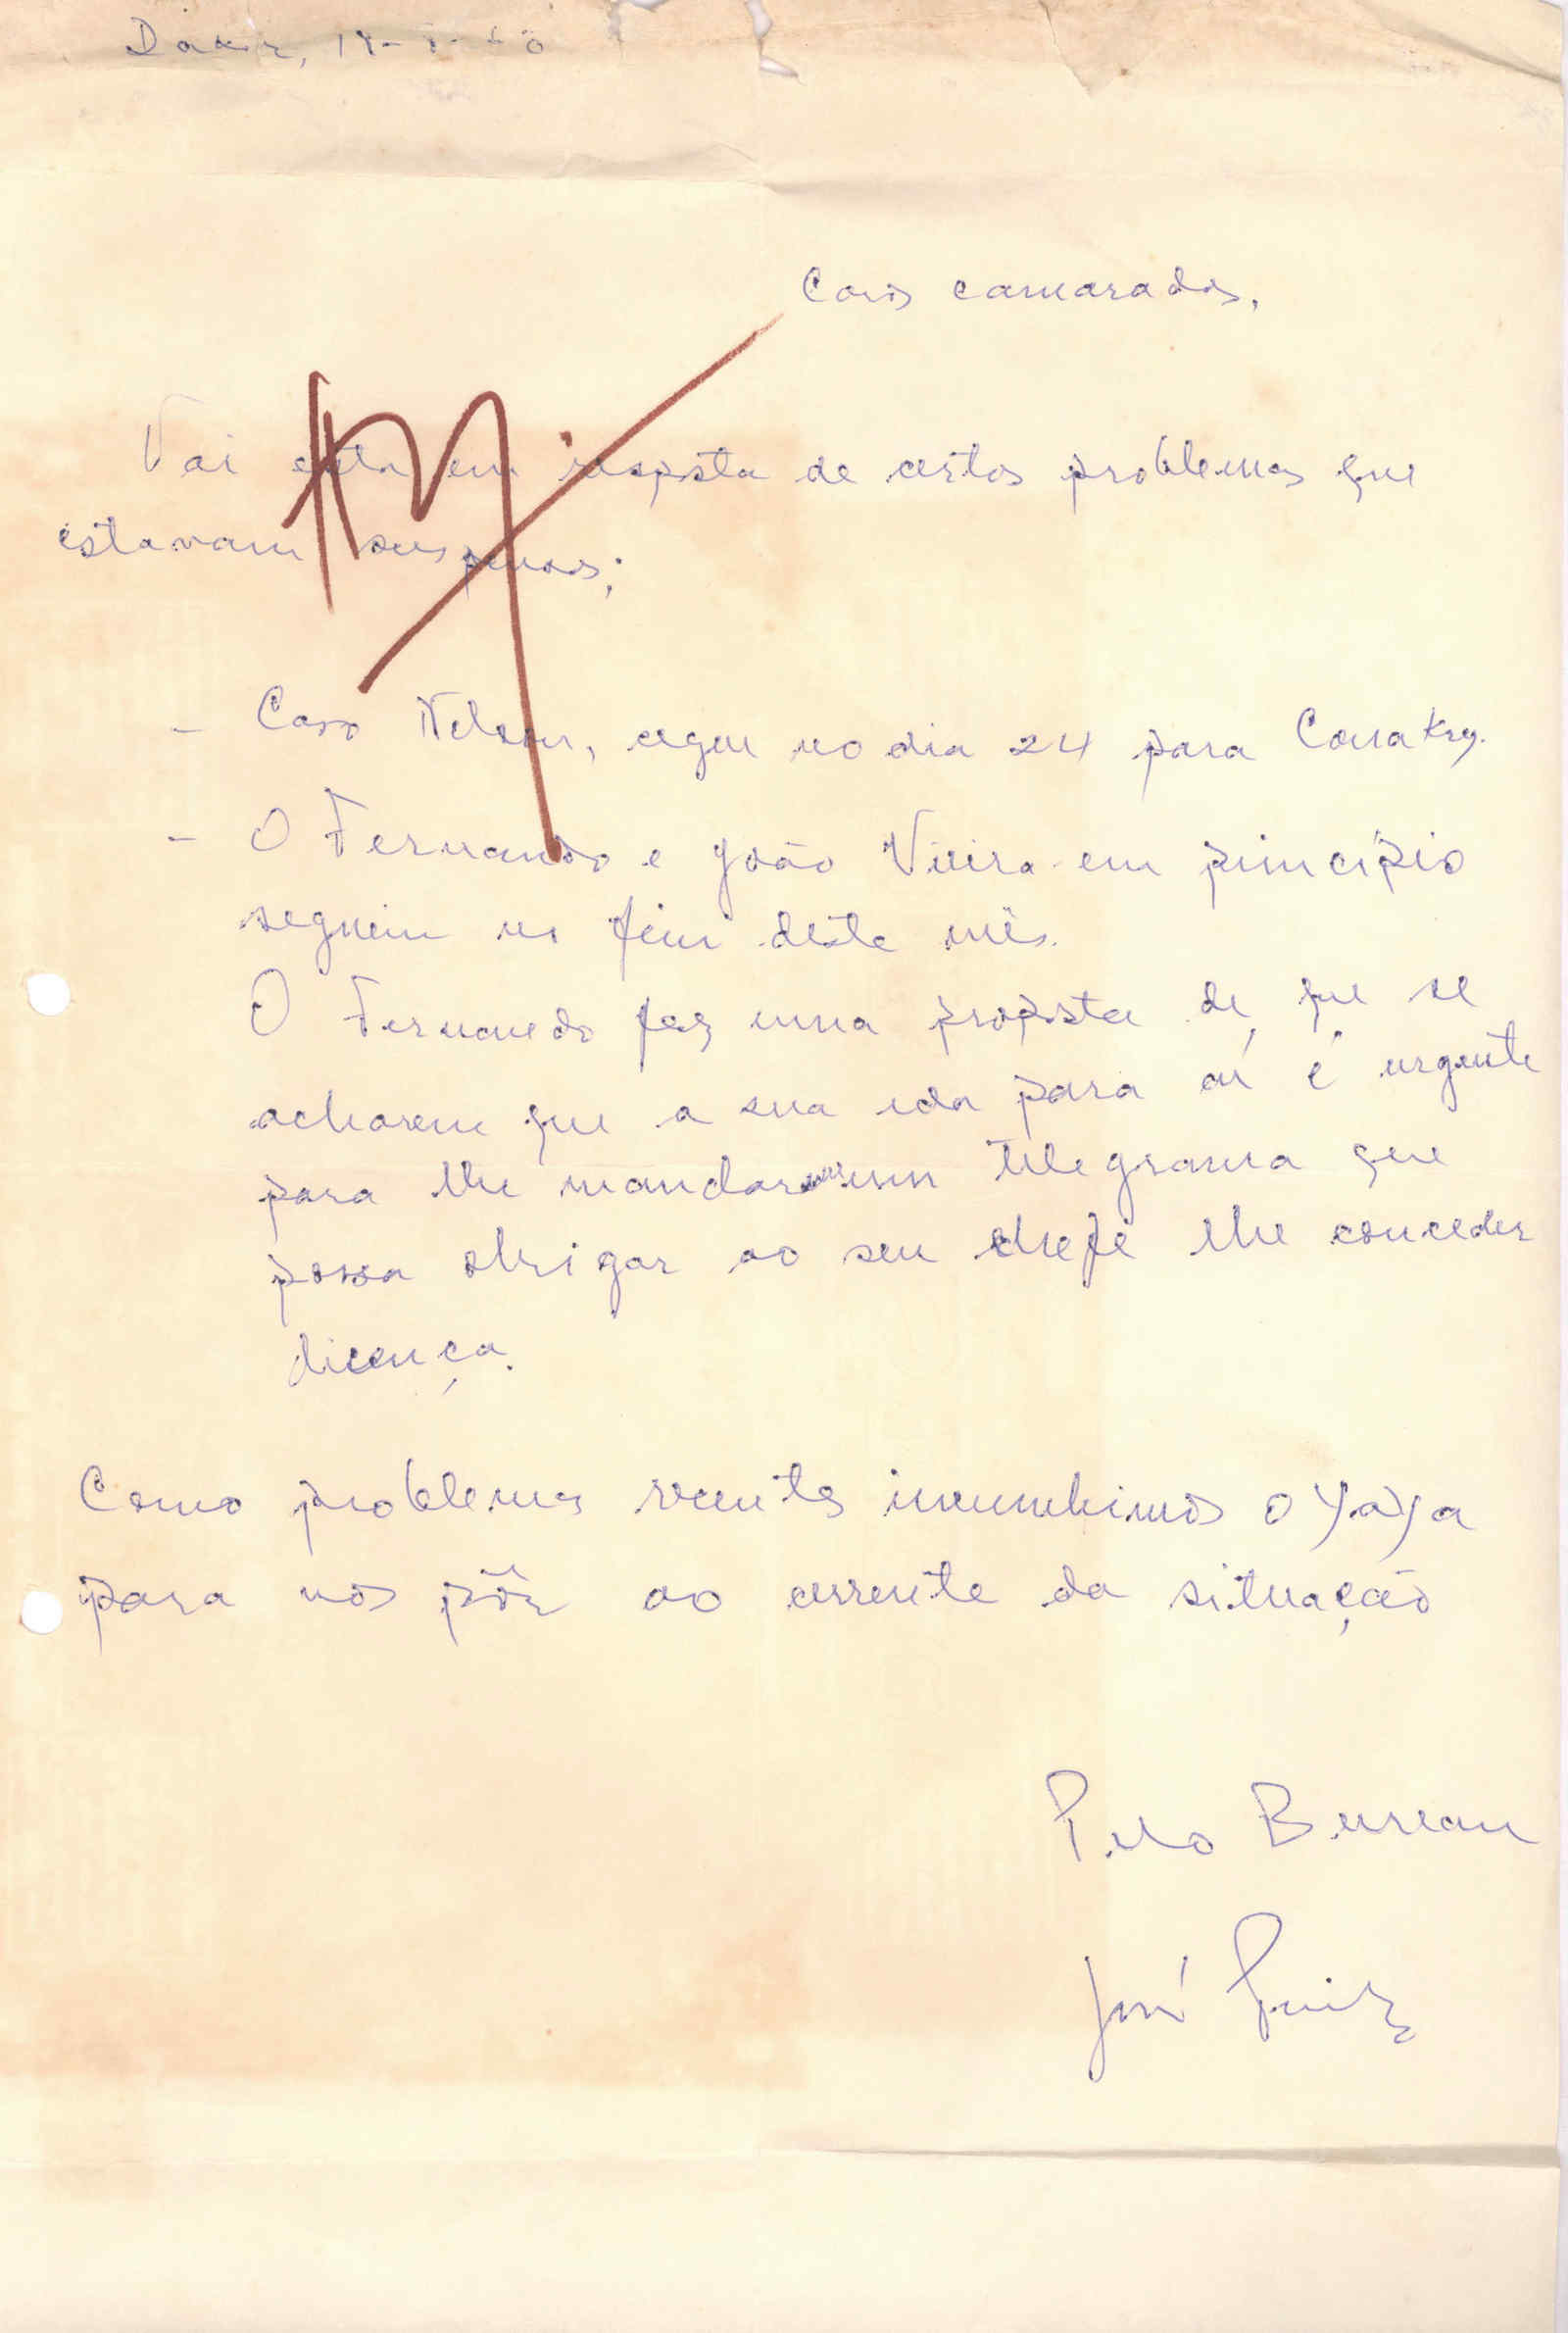 Dakar,
Caros camaradas,
Vai esta em resposta de certos problemas que
estavam suspensos;
- Caso Nelson, segue no dia 24 para Conakry.
- O Fernando e João Vieira em principio
seguem no fim dêste mês.
O Fernando faz uma proposta de que se
acharem que a sua ida para aí é urgente
para lhe mandarem um telegrama que
possa obrigar ao seu chefe lhe conceder
licença.
Como problemas recentes incumbimos o Yaya
para nos pôr ao corrente da situação
Pelo Bureau
José